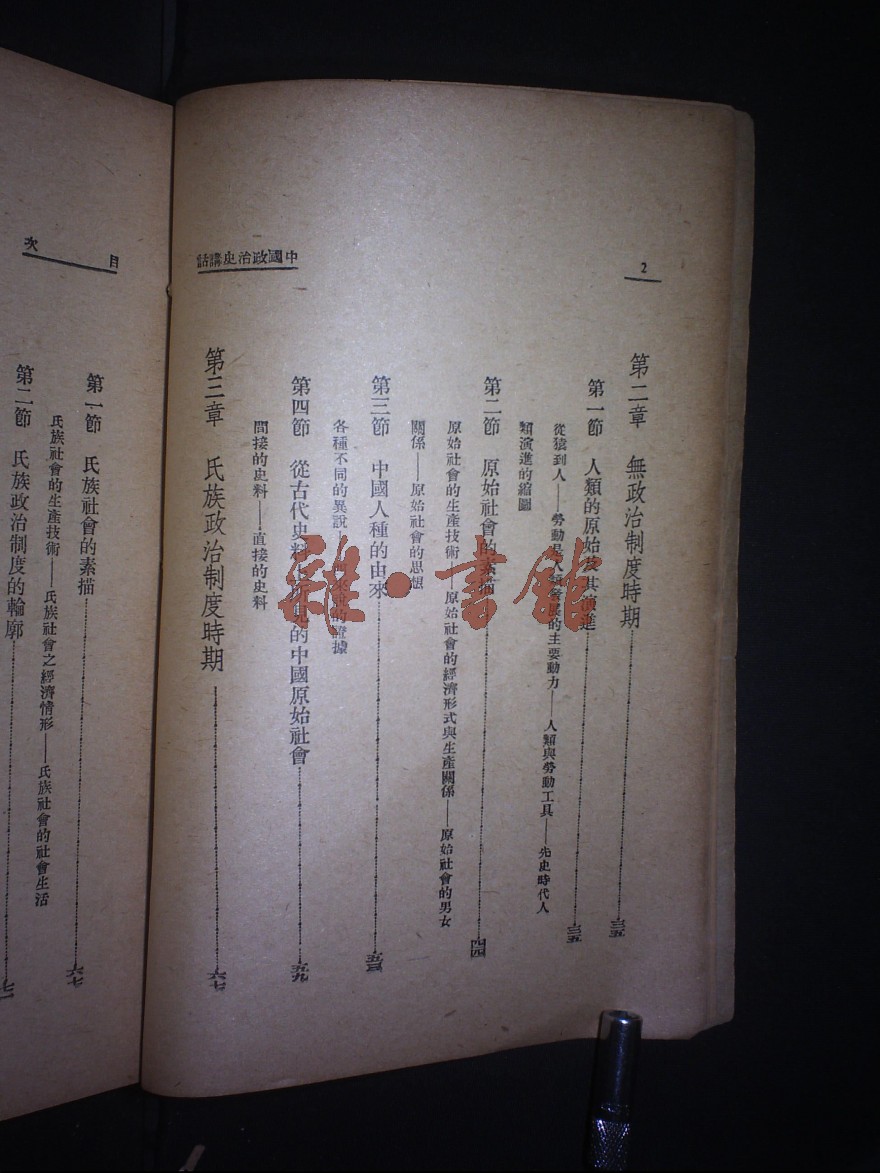 2
中國政治史講話
第二章　無政治制度時期……三五
第一節　人類的原始及其演進……三五
從猿到人——勞動是人類發展的主要動力——人類與勞動工具——先史時代人
類演進的縮圖
第二節　原始社會的素描……四四
原始社會的生產技術——原始社會的經濟形式與生產關係——原始社會的男女
關係——原始社會的思想
第三節　中國人種的由來……五三
各種不同的異說 的證據
第四節　從古代史料上所見的中國原始社會……五九
間接的史料——直接的史料
第三章　氏族政治制度時期……六七
目次
第一節　氏族社會的素描……六七
氏族社會的生產技術——氏族社會之經濟情形——氏族社會的社會生活
第二節　氏族政治制度的輪廓……七一
雜·書館